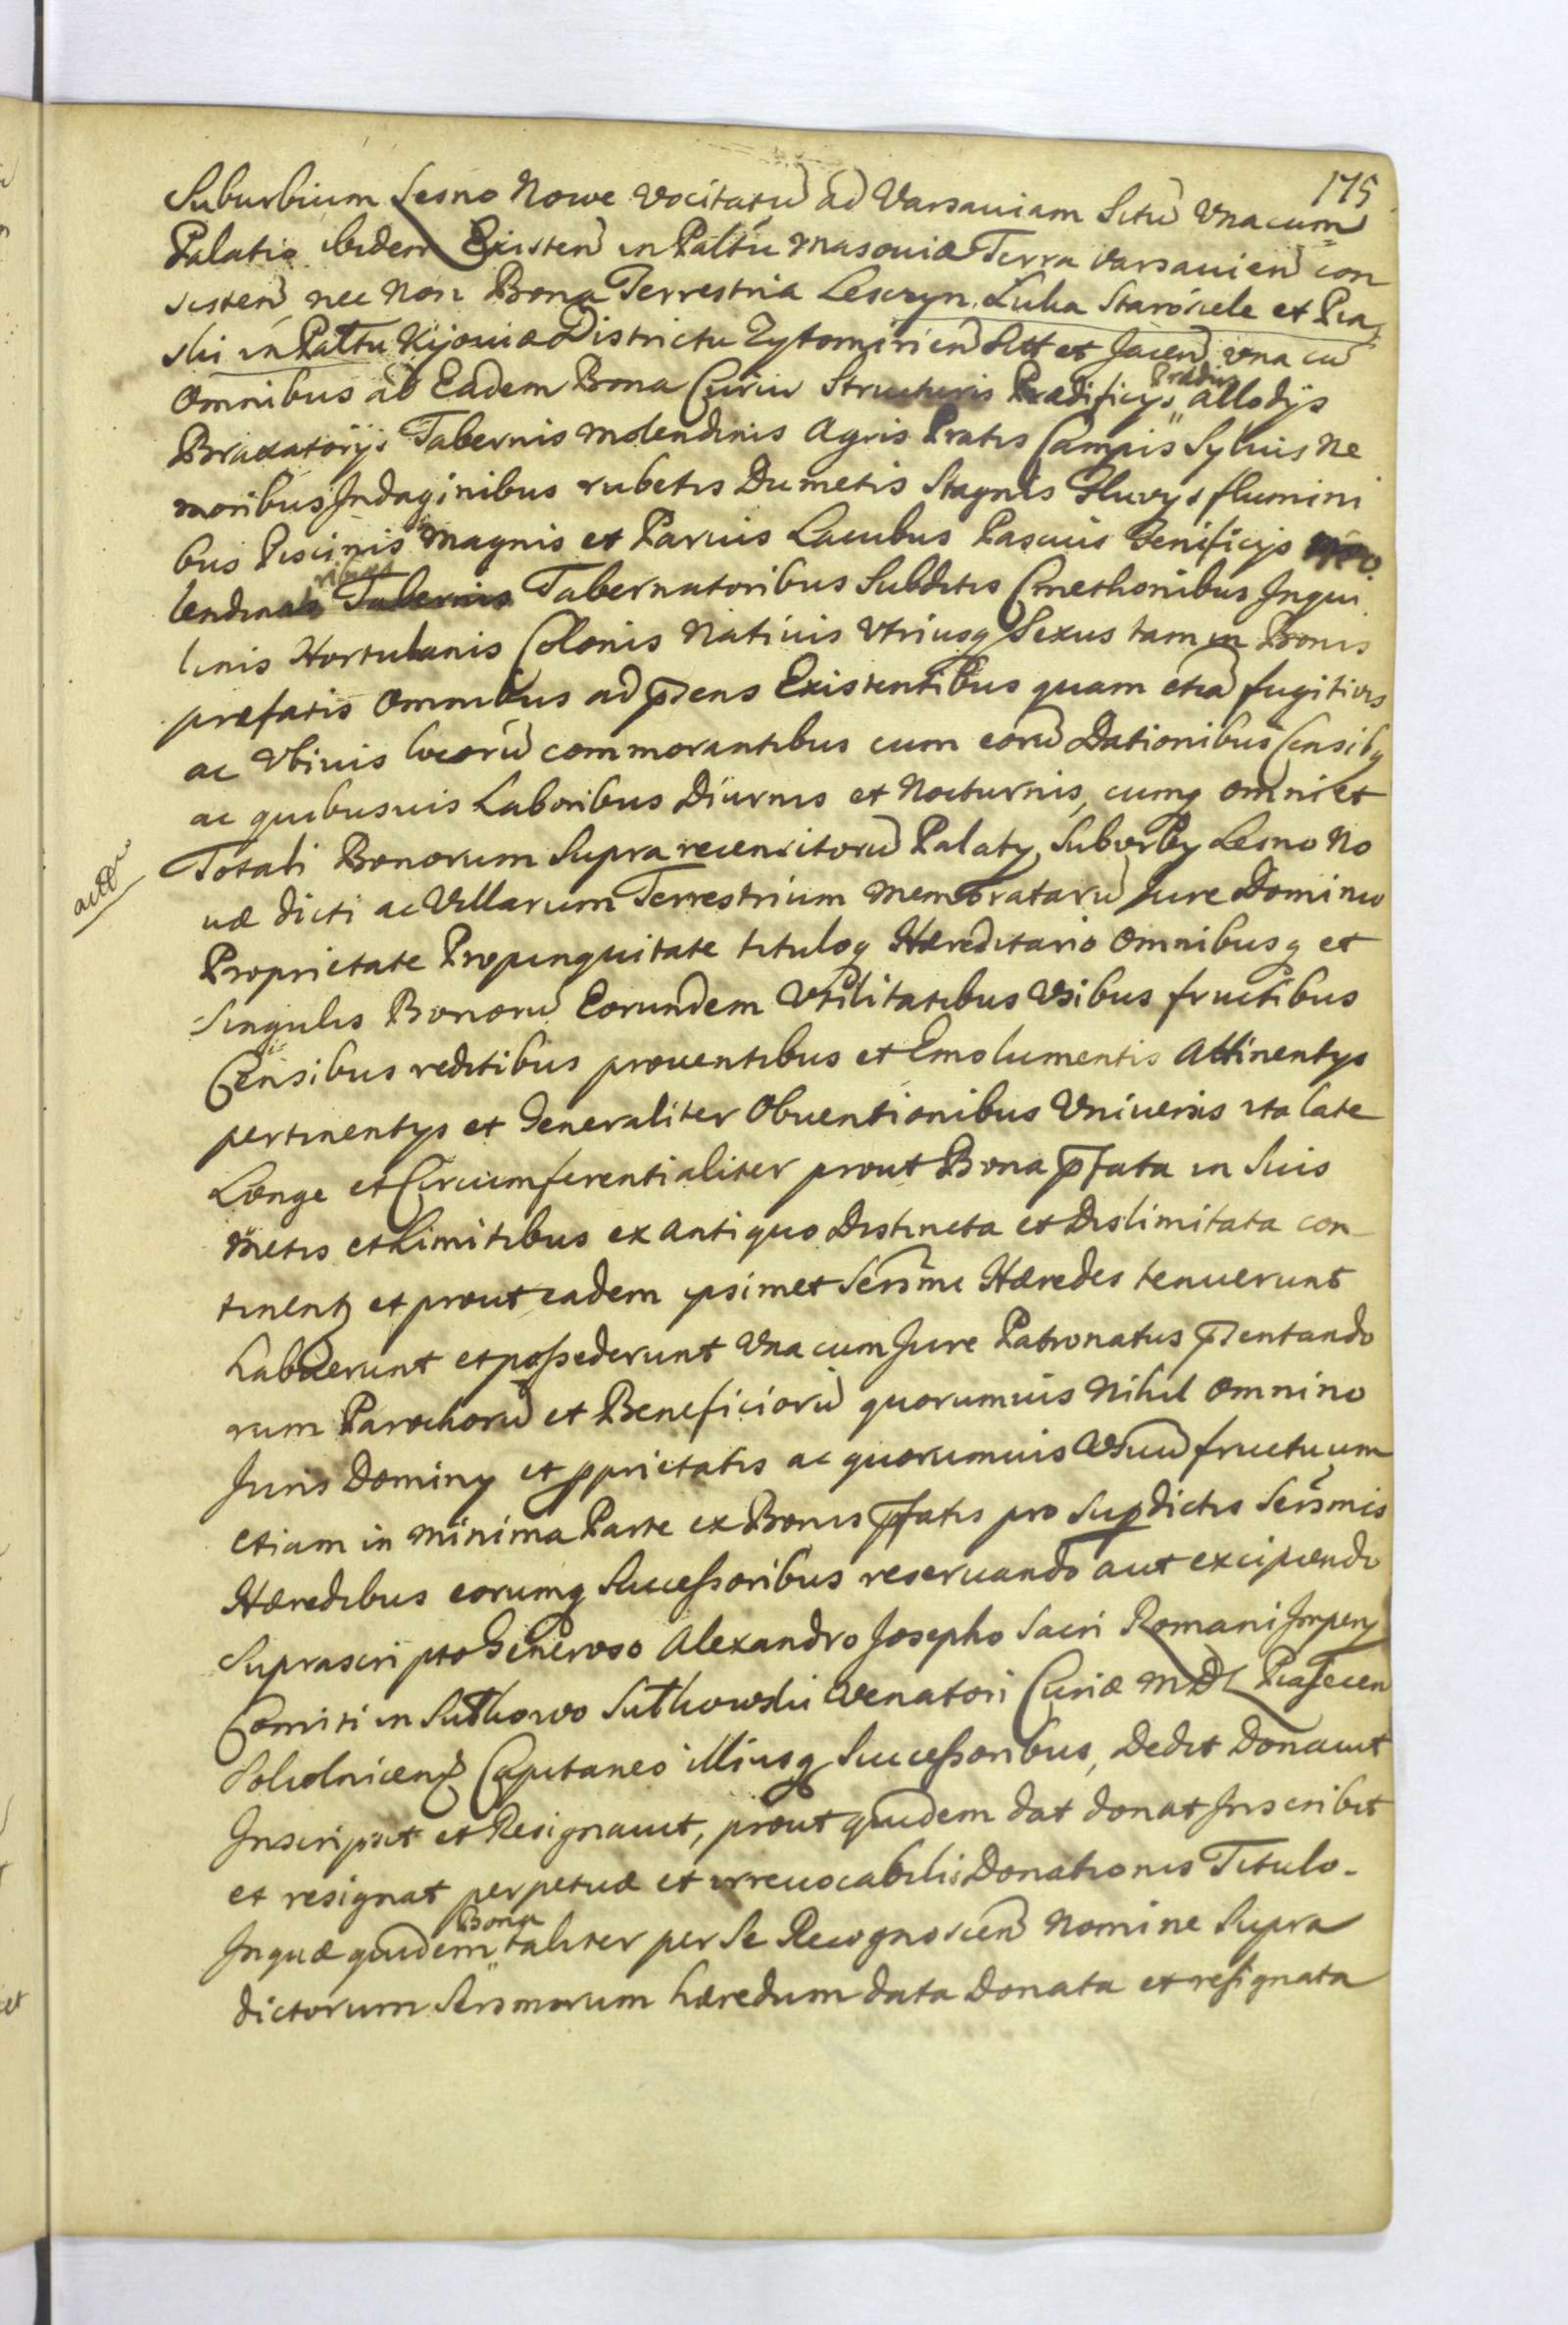 175
Suburbium Lesno Nowe Vocitatu ad Varsauiam Situ Vnacum
Palatio Ibidem Existen in Paltu Masouiæ Terra Varsauien con
sisten, nec Non Bona Terrestria Lesczyn, Luka Starosiele et Pia
ski in Paltu Kijouiæ Districtu Zytomirien Sitt et Jacen, vna cu
Omnibus ad Eadem Bona Curiis Structuris Prædificijs Prædijs allodijs
Braxatorijs Tabernis molendinis Agris Pratis Campis Syluis Ne
moribus Indaginibus rubetis Dumetis Stagnis Fluvijs flumini
bus Piscinis Magnis et Paruis Lacubus Pascuis Benificijs Mo
lendinatoribus Tabernis Tabernatoribus Subditis Cmethonibus Inqui
linis Hortulanis Colonis Natiuis Vtriusq Sexus tam in Bonis
præfatis Omnibus ad pñens Existentibus quam etia fugitiuis
ac Vbiuis locoru commorantibus cum eoru Dationibus Censibq
ac quibusuis Laboribus Diurnis et Nocturnis, cumq omni et
actt
Totali Bonorum Supra recensitoru Palaty, Suburby Lesno No
uæ dicti ac Villarum Terrestrium Memorataru Jure Dominio
Proprietate Propinquitate tituloq Hæreditario Omnibusq et
Singulis Bonoru Eorundem Vtilitatibus Vsibus fructibus
Censibus reditibus prouentibus et Emolumentis Attinentys
pertinentys et Generaliter Obuentionibus Vniuersis ita late
Longe et Circumferentialiter prout Bona pfata in Suis
Metis et Limitibus ex antiquo Distincta et Dislimitata con
tinentq et prout eadem ipsimet Sersmi Hæredes tenuerunt
habuerunt et possederunt Vna cum Jure Patronatus pñentando
rum Parochoru et Beneficioru quorumuis Nihil Omnino
Juris Dominy et pprietatis ac quorumuis Vsuu fructuum
etiam in minima Parte ex Bonis pfatis pro Supdictis Sersmis
Hæredibus eorumq Successoribus reseruando aut excipiendo
Suprascripto Generoso Alexandro Josepho Sacri Romani Impery
Comiti in Sutkowo Sutkowski Venatori Curiæ MDL Piasecen
Soludnicenq Capitaneo illiusq Successoribus, Dedit Donauit
Inscripsit et Resignauit, prout quidem dat donat Inscribit
et resignat perpetuæ et irreuocabilis Donationis Titulo.
In quæ quidem Bona taliter per Se Recognoscen Nomine Supra
dictorum Sersmorum hæredum data Donata et resignata